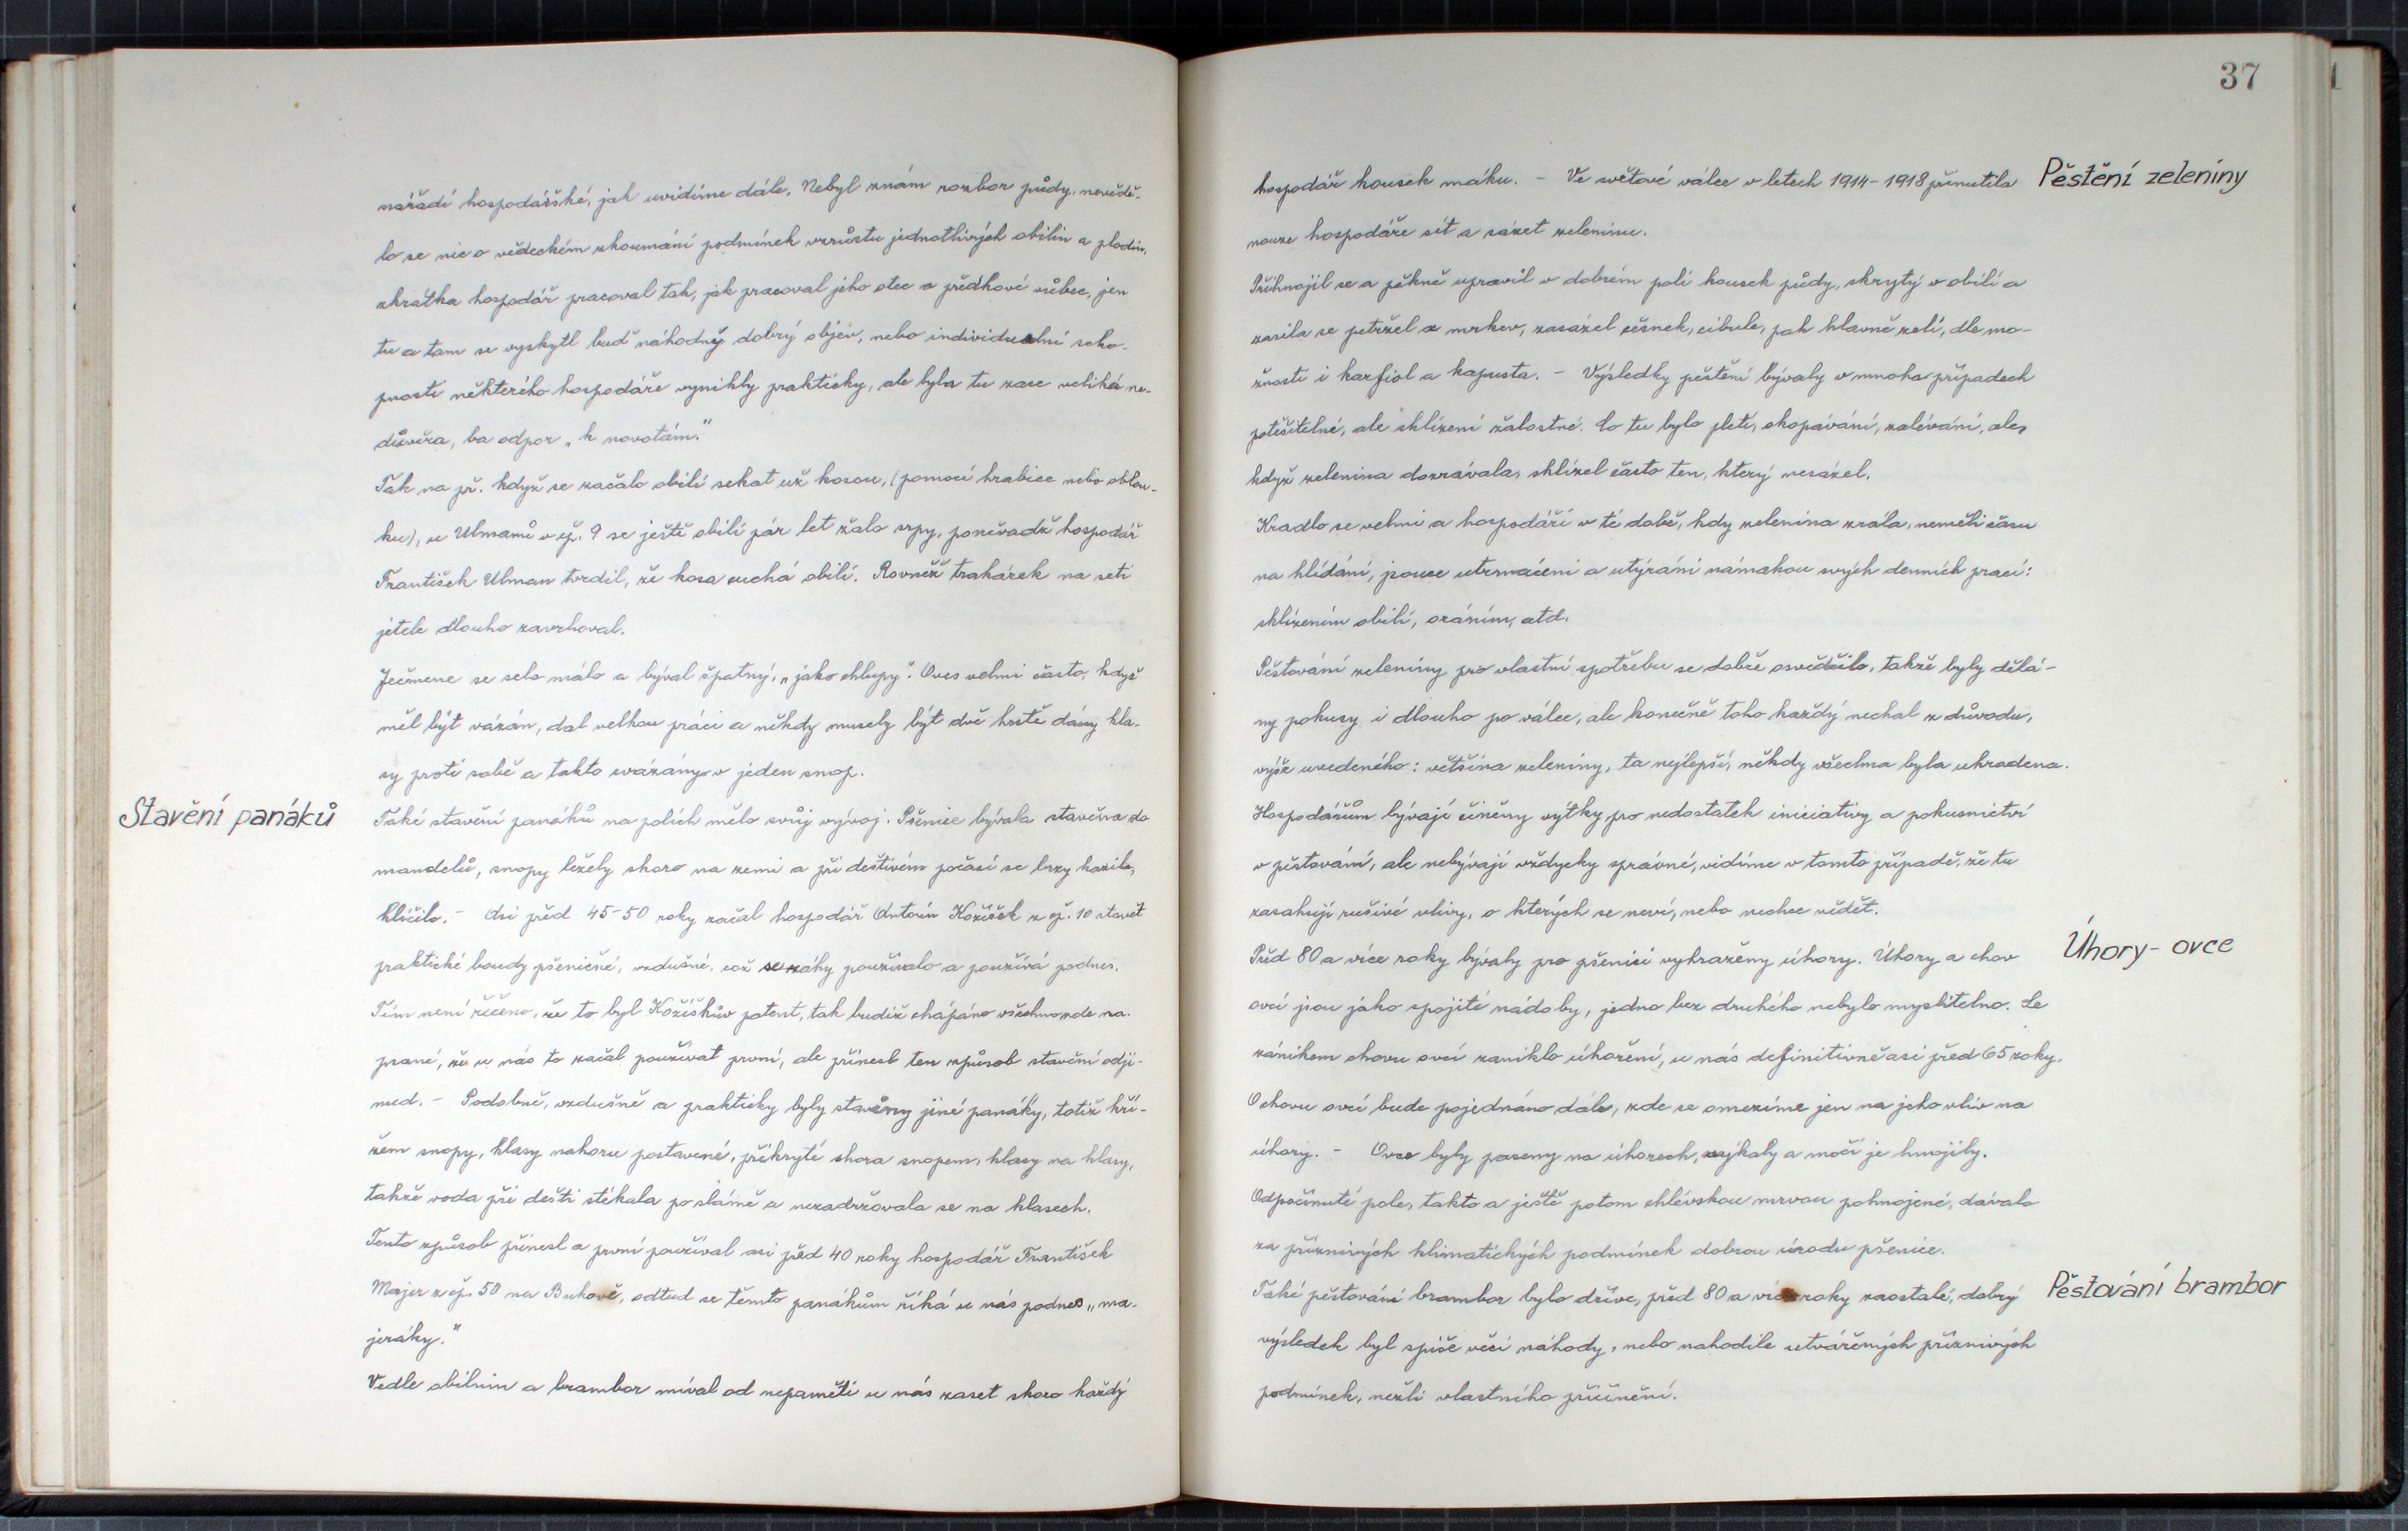 nářadí hospodářské, jak uvidíme dále. Nebyl znám rozbor půdy, nevědě-
lo se nic o vědeckém zkoumání podmínek vzrůstu jednotlivých obilin a plodin,
zkrátka hospodář pracoval tak, jak pracoval jeho otec a předkové vůbec, jen
tu a tam se vyskytl buď náhodný dobrý objev, nebo individuelní scho-
pnosti některého hospodáře vynikly prakticky, ale byla tu zase veliká ne-
důvěra, ba odpor „k novotám.“
Tak na př. když se začalo obilí sekat už kosou, (pomocí hrabice nebo oblou-
ku), u Ulmanů v čp. 9 se ještě obilí pár let žalo srpy, poněvadž hospodář
František Ulman tvrdil, že kosa cuchá obilí. Rovněž trakárek na setí
jetele dlouho zavrhoval.
Ječmene se selo málo a býval špatný, „jako chlupy“. Oves velmi často, když
měl být vázán, dal velkou práci a někdy musely být dvě hrstě dány kla-
sy proti sobě a takto svázány v jeden snop.
Stavění panáků
Také stavění panáků na polích mělo svůj vývoj. Pšenice bývala stavěna do
mandelů, snopy ležely skoro na zemi a při deštivém počasí se brzy kazilo,
klíčilo. - Asi před 45-50 roky začal hospodář Antonín Kožíšek z čp. 10 stavět
praktické boudy pšeničné, vzdušné, což se záhy používalo a používá podnes.
Tím není řečeno, že to byl Kožíškův patent, tak budiž chápáno všechno zde na-
psané, že u nás to začal používat první, ale přinesl ten způsob stavění odji-
nud. - Podobně, vzdušně a prakticky byly stavěny jiné panáky, totiž kří-
žem snopy, klasy nahoru postavené, přikryté shora snopem, klasy na klasy,
takže voda při dešti stékala po slámě a nezadržovala se na klasech.
Tento způsob přinesl a první používal asi před 40 roky hospodář František
Majer z čp. 50 na Bukově, odtud se těmto panákům říká u nás podnes „ma-
jeráky.“
Vedle obilnin a brambor míval od nepaměti u nás zaset skoro každý
37
hospodář kousek máku. - Ve světové válce v letech 1914-1918 přinutila
Pěstění zeleniny
nouze hospodáře sít a sázet zeleninu.
Přihnojil se a pěkně upravil v dobrém poli kousek půdy, skrytý v obilí a
zasila se petržel a mrkev, zasázel česnek, cibule, pak hlavně zelí, dle mo-
žnosti i karfiol a kapusta. - Výsledky pěstění bývaly v mnoha případech
potěšitelné, ale sklizení žalostné. Co tu bylo pletí, okopávání, zalévání, ale,
když zelenina dozrávala, sklízel často ten, který nesázel.
Kradlo se velmi a hospodáři v té době, kdy zelenina zrála, neměli času
na hlídání, jsouce utrmáceni a utýráni námahou svých denních prací:
sklizením obilí, oráním, atd.
Pěstování zeleniny pro vlastní spotřebu se dobře osvědčilo, takže byly dělá-
ny pokusy i dlouho po válce, ale konečně toho každý nechal z důvodu,
výše uvedeného: většina zeleniny, ta nejlepší, někdy všechna byla ukradena.
Hospodářům bývají činěny výtky pro nedostatek iniciativy a pokusnictví
v pěstování, ale nebývají vždycky správné, vidíme v tomto případě, že tu
zasahují rušivé vlivy, o kterých se neví, nebo nechce vědět.
Před 80 a více roky bývaly pro pšenici vyhraženy úhory. Úhory a chov
Úhory - ovce
ovcí jsou jako spojité nádoby, jedno bez druhého nebylo myslitelno. Se
zánikem chovu ovcí zaniklo úhoření, u nás definitivně asi před 65 roky.
O chovu ovcí bude pojednáno dále, zde se omezíme jen na jeho vliv na
úhory. - Ovce byly paseny na úhorech, výkaly a močí je hnojily.
Odpočinuté pole, takto a ještě potom chlévskou mrvou pohnojené, dávalo
za příznivých klimatických podmínek dobrou úrodu pšenice.
Také pěstování brambor bylo dříve, před 80 a více roky zaostalé, dobrý
Pěstování brambor
výsledek byl spíše věcí náhody, nebo nahodile utvářených příznivých
podmínek, nežli vlastního přičinění.